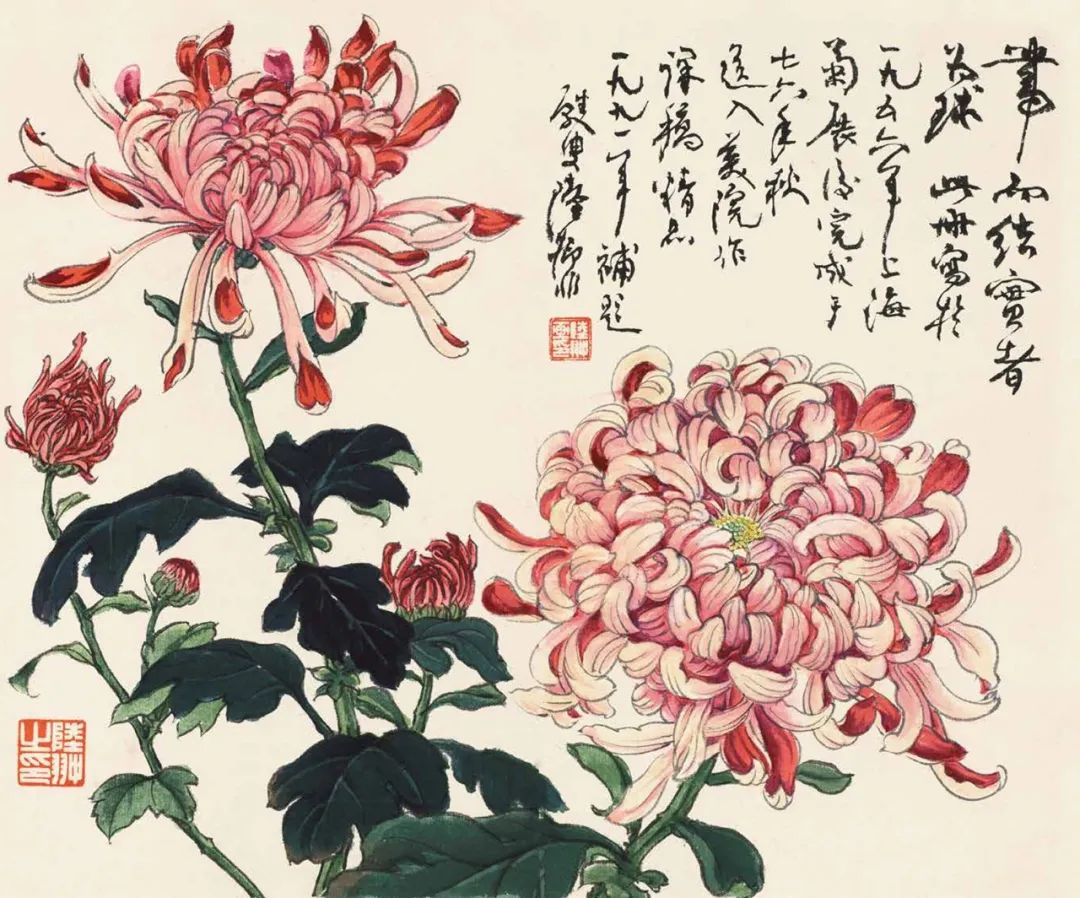 華而結實者
大球此冊寫於
一九五六年上海
菊展後完成于
七六年秋
送入美院作
課稿精品
一九九一年補題
甦叟陸抑非
陸翀之印